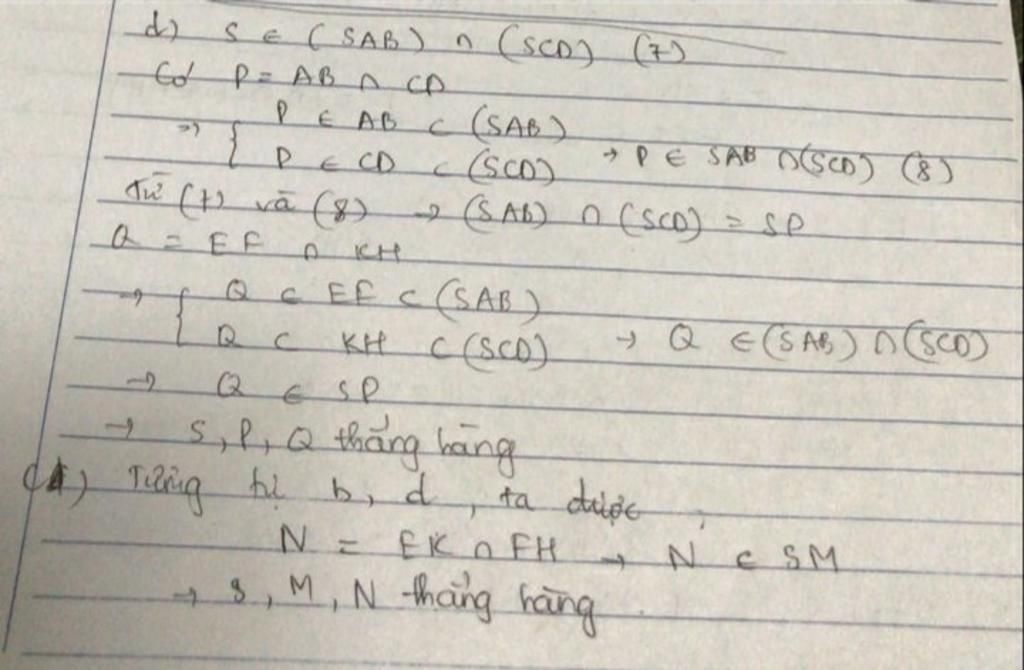 d) S ∈ (SAB) ∩ (SCD) (7)
Có P = AB ∩ CD
=> { P ∈ AB ⊂ (SAB)
P ∈ CD ⊂ (SCD) → P ∈ SAB ∩ (SCD) (8)
Từ (7) và (8) → (SAB) ∩ (SCD) = SP
Q = EF ∩ KH
→ { Q ⊂ EF ⊂ (SAB)
Q ⊂ KH ⊂ (SCD) → Q ∈ (SAB) ∩ (SCD)
→ Q ∈ SP
→ S, P, Q thẳng hàng
) Tương tự b, d, ta được
N = EK ∩ FH → N ∈ SM
→ S, M, N thẳng hàng